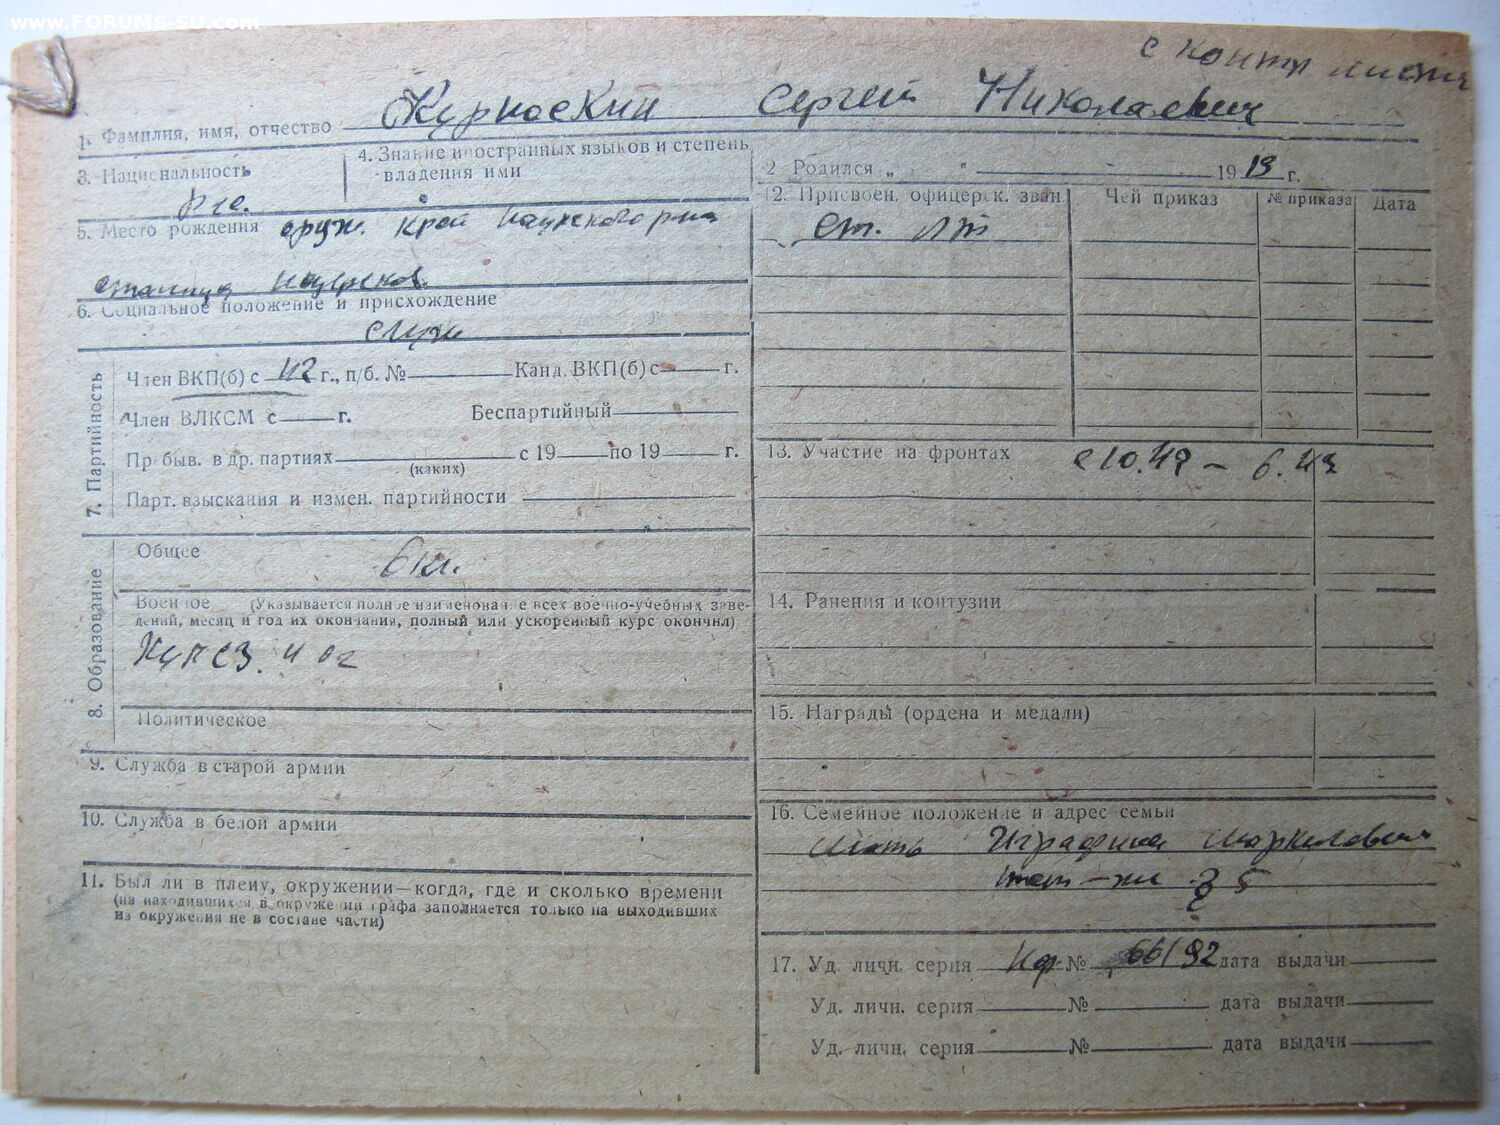 www.FORUMS-SU.com
с контр листа
1. Фамилия, имя, отчество Сергей Николаевич
3. Национальность рус.
4. Знание иностранных языков и степень владения ими
5. Место рождения ордж. край Наурского р-на
станица Наурская
6. Социальное положение и присхождение
служ
7. Партийность
Член ВКП(б) с 42 г., п/б. № Канд. ВКП(б) с г.
Член ВЛКСМ с г. Беспартийный
Пребыв. в др. партиях с 19 по 19 г.
(каких)
Парт. взыскания и измен. партийности
8. Образование
Общее
6 кл.
Военное (Указывается полное наименование всех военно-учебных заве-
дений, месяц и год их окончания, полный или ускоренный курс окончил)
Политическое
9. Служба в старой армии
10. Служба в белой армии
11. Был ли в плену, окружении—когда, где и сколько времени
(на находившихся в окружении графа заполняется только на выходивших
из окружения не в составе части)
2 Родился „ “ 1913 г.
12. Присвоен. офицерск. зван. Чей приказ № приказа Дата
Ст. лт
13. Участие на фронтах
14. Ранения и контузии
15. Награды (ордена и медали)
16. Семейное положение и адрес семьи
мать Маркеловна
17. Уд. личн. серия № дата выдачи
Уд. личн. серия № дата выдачи
Уд. личн. серия № дата выдачи